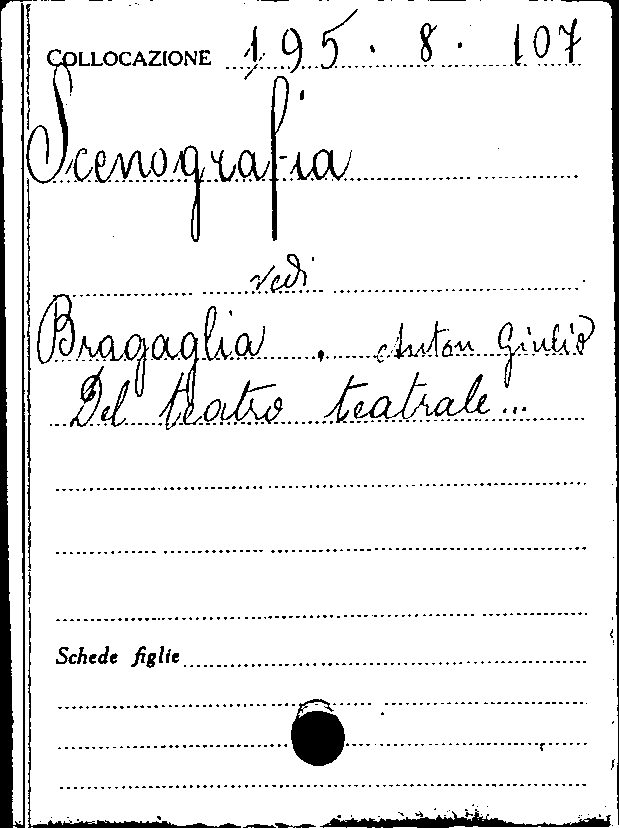 COLLOCAZIONE 195. 8. 107
Scenografia
vedi
Bragaglia, Anton Giulio
Del teatro teatrale...
Schede figlie